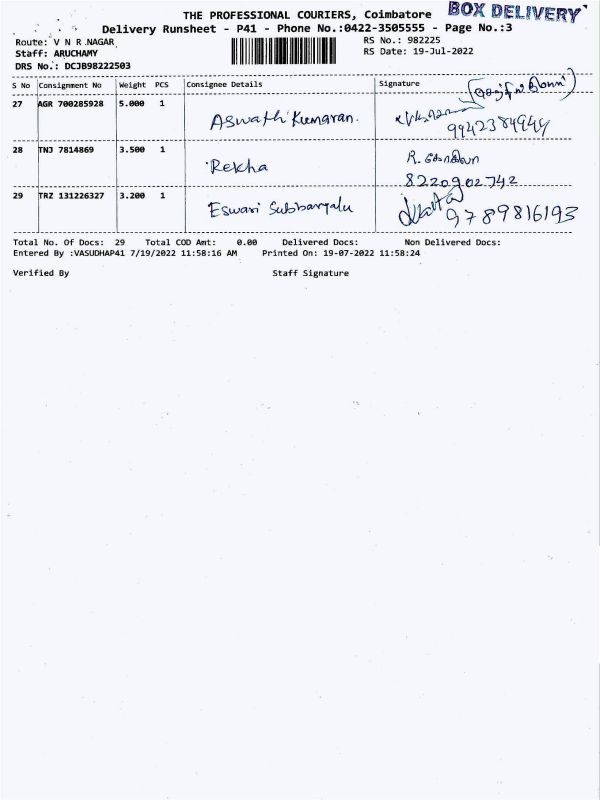 THE PROFESSIONAL COURIERS, Coimbatore BOX DELIVERY
Delivery Runsheet - P41 - Phone No.:0422-3505555 - Page No.:3
Route: V N R NAGAR RS No.: 982225
Staff: ARUCHAMY RS Date: 19-Jul-2022
DRS No.: DCJB98222503
S No Consignment No Weight PCS Consignee Details Signature
27 AGR 700285928 5.000 1 Aswath Kumaran.
9942384949
28 TNJ 7814869 3.500 1 Rekha R.
8220902742
29 TRZ 131226327 3.200 1 Eswari Subbaryalu
9789816193
Total No. Of Docs: 29 Total COD Amt: 0.00 Delivered Docs: Non Delivered Docs:
Entered By :VASUDHAP41 7/19/2022 11:58:16 AM Printed On: 19-07-2022 11:58:24
Verified By Staff Signature